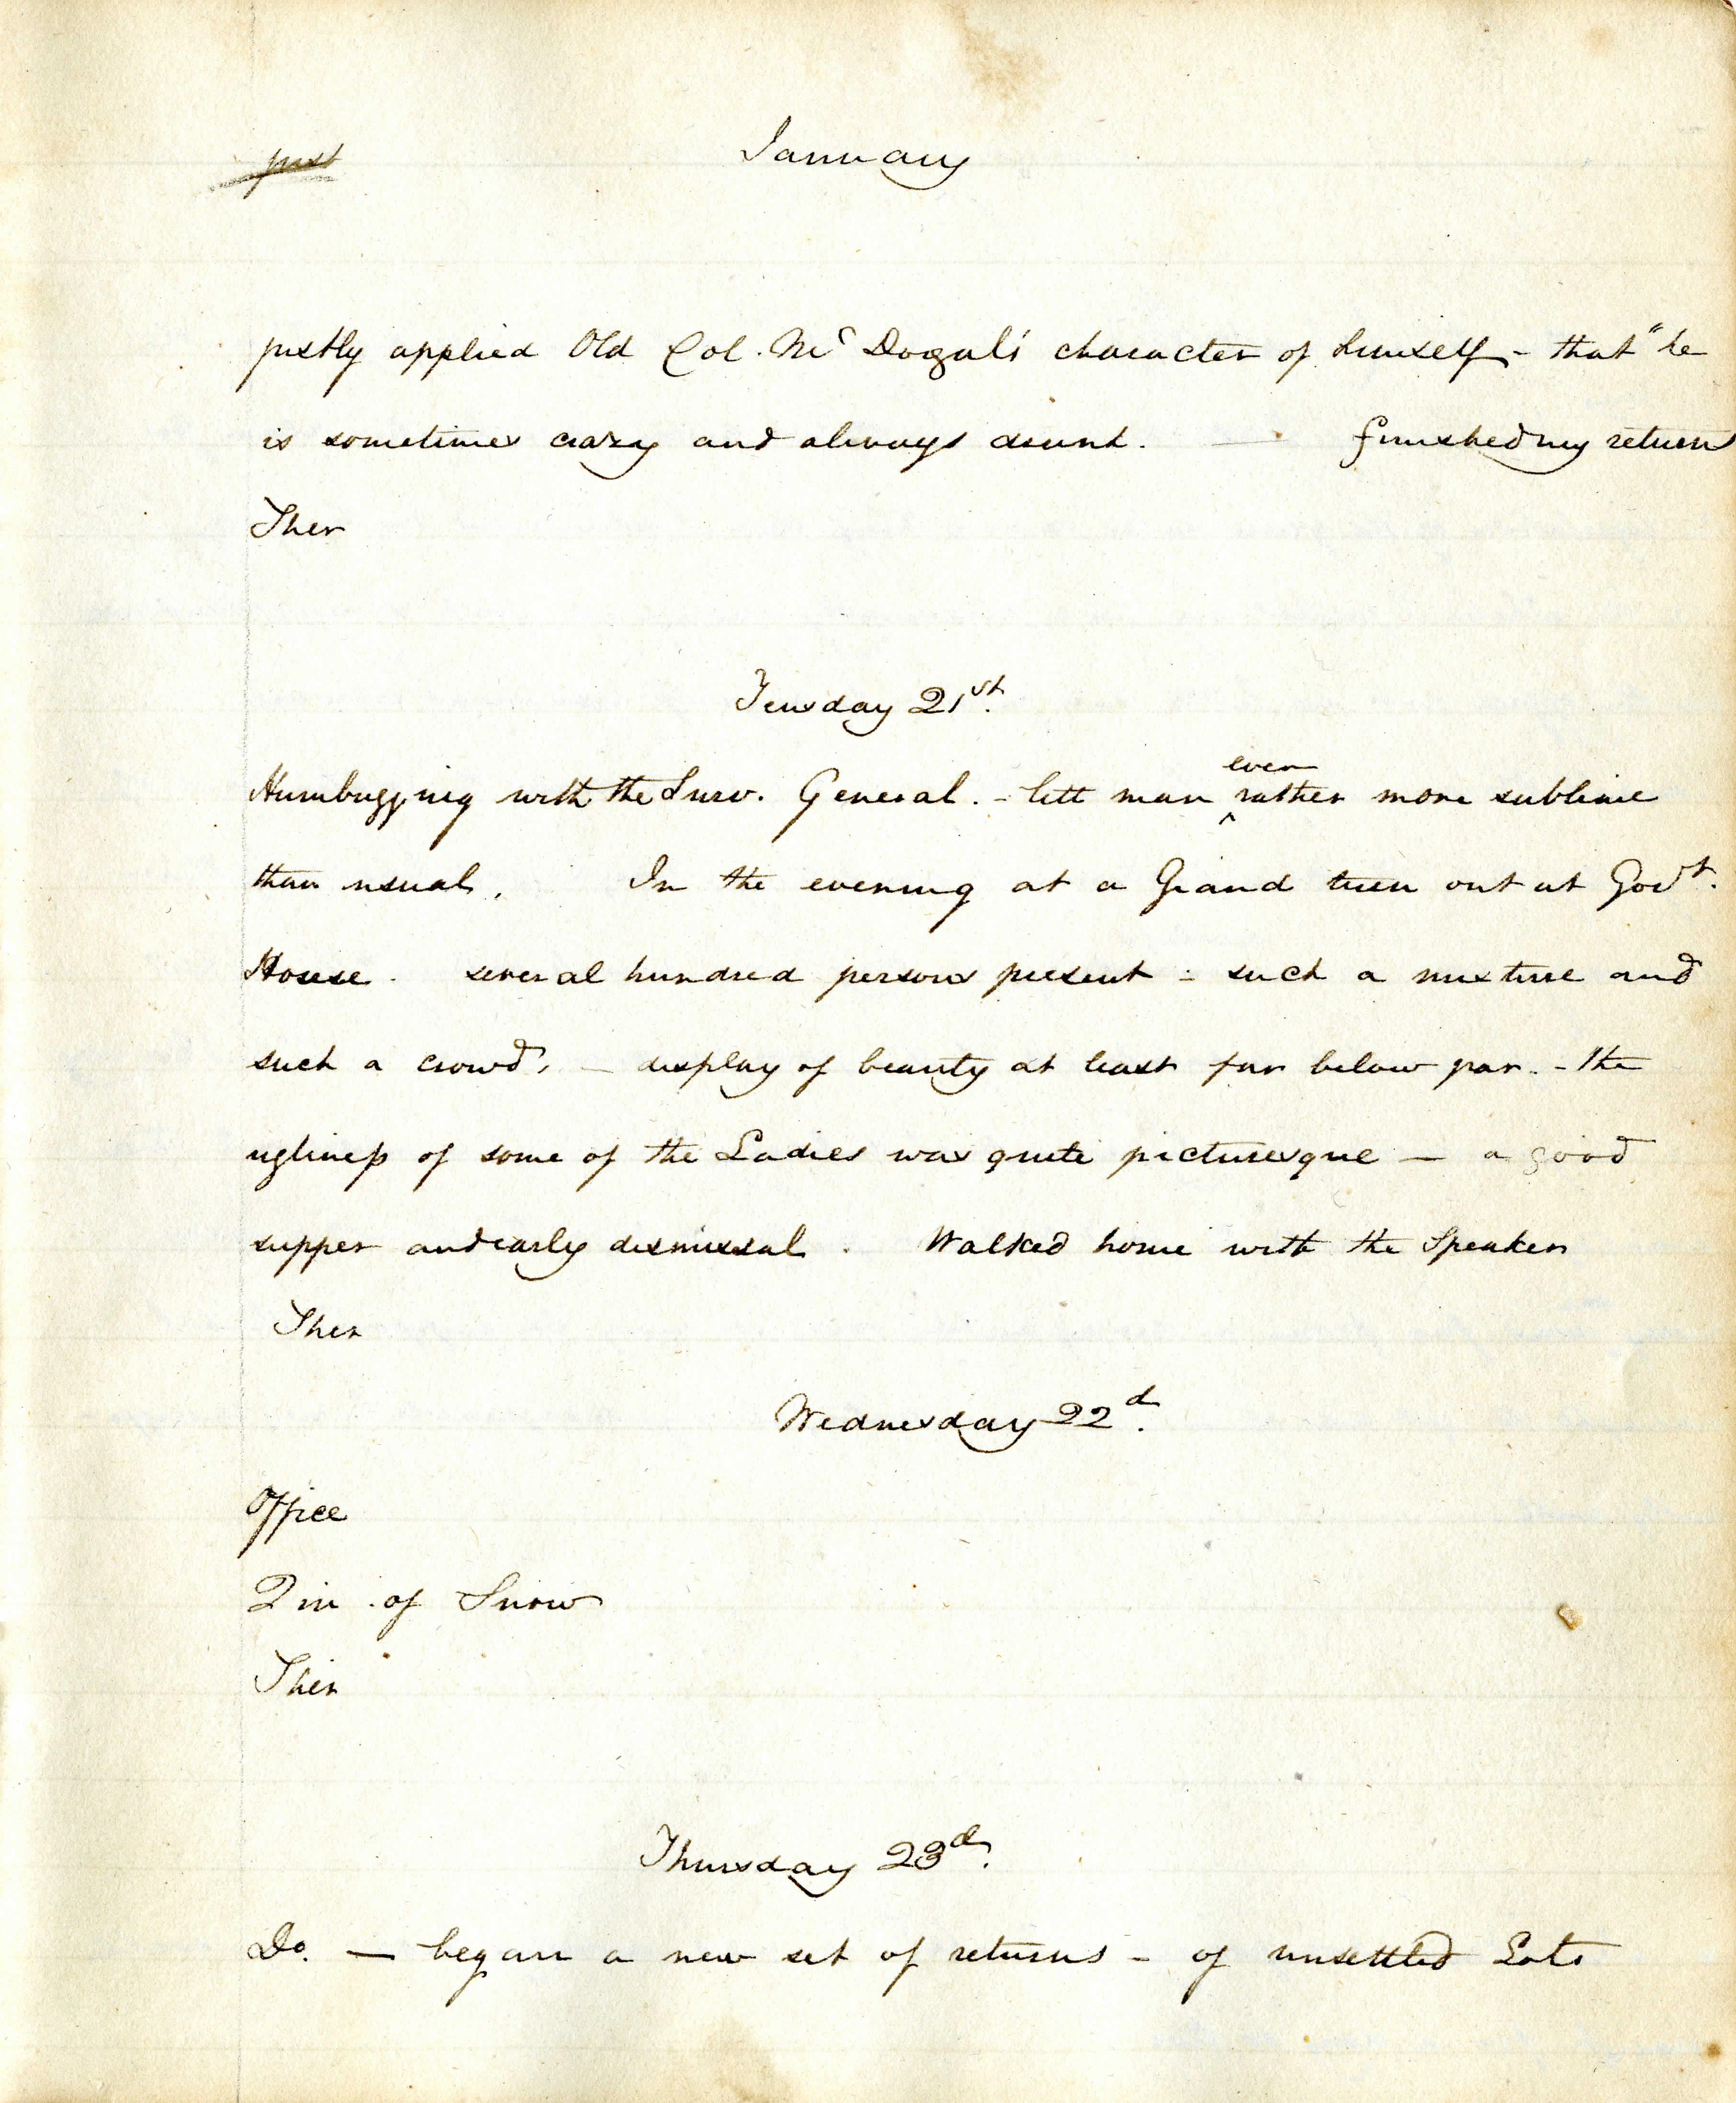 just January
justly applied Old Col. Mc Dogal's character of himself - that "he
is sometimes crazy and always drunk. — finished my return
Ther
Teusday 21st.
Humbugging with the Surv. General. - litt man even rather more sublime
than usual. In the evening at a Grand turn out at Govt.
House. several hundred persons present - such a mixture and
such a crowd, - display of beauty at least far below par. - the
ugliness of some of the Ladies was quite picturesque — a good
supper and early dismissal. Walked home with the Speaker
Ther
Wednesday 22d.
Office
2 in. of Snow
Ther
Thursday 23d.
Do. — began a new set of returns - of unsettled Lots